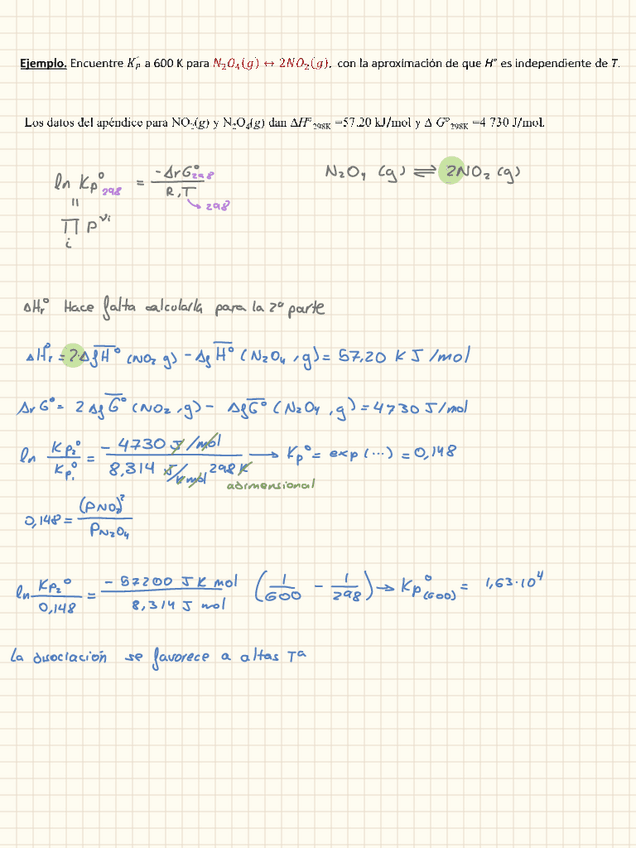 Ejemplo. Encuentre K°p a 600 K para N₂O₄(g) ↔ 2NO₂(g), con la aproximación de que H° es independiente de T.
Los datos del apéndice para NO₂(g) y N₂O₄(g) dan ΔH°₂₉₈K =57.20 kJ/mol y Δ G°₂₉₈K =4 730 J/mol.
ln Kp°₂₉₈ = -ΔrG°₂₉₈ / R.T → 298
N₂O₄ (g) ⇌ 2NO₂ (g)
"
∏ P^νi
i
ΔHr° Hace falta calcularla para la 2ª parte
ΔHr° = 2·ΔfH° (NO₂ g) - ΔfH° (N₂O₄, g) = 57,20 KJ/mol
ΔrG° = 2 ΔfG° (NO₂, g) - ΔfG° (N₂O₄, g) = 4730 J/mol
ln Kp₂°/Kp₁° = -4730 J/mol / 8,314 J/K mol 298 K → Kp° = exp (...) = 0,148
adimensional
0,148 = (PNO₂)² / PN₂O₄
ln Kp₂°/0,148 = -57200 J K mol / 8,314 J mol (1/600 - 1/298) → Kp°(600) = 1,63·10⁴
La disociación se favorece a altas Tª